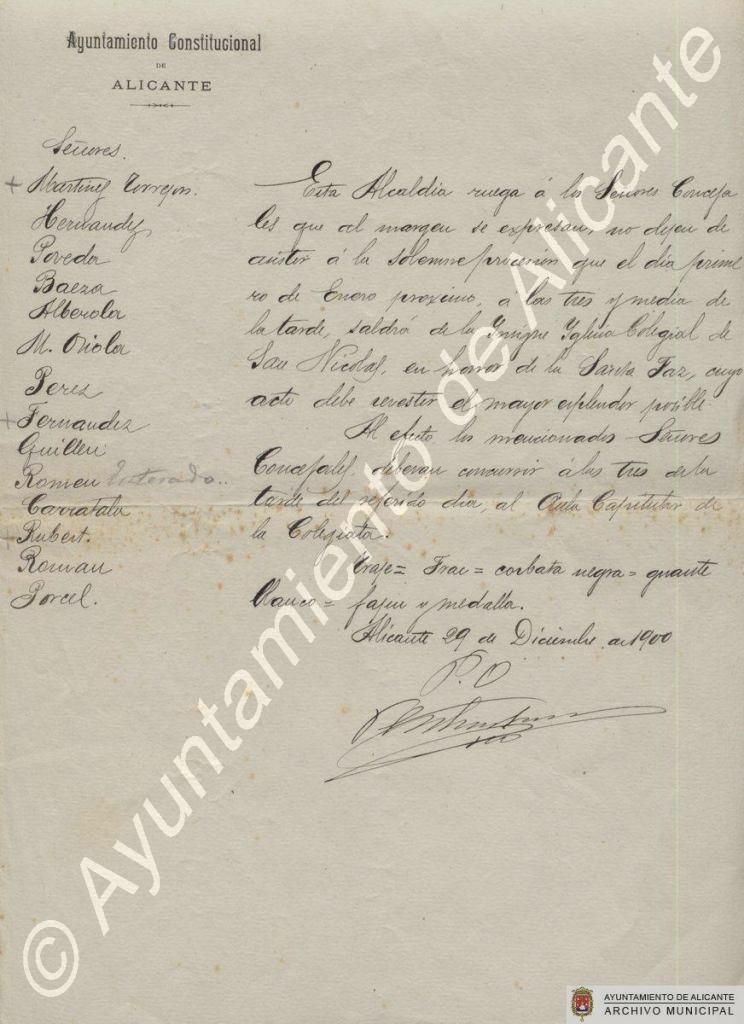 Ayuntamiento Constitucional
DE
ALICANTE
Señores.
+ Martinez Torrejon.
Hernandez
Poveda
Baeza
Alberola
M. Oriola
Perez
+ Fernandez
Guillen
Romeu Enterado..
Carratala
+ Rubert.
Roman
Porcel.
Esta Alcaldia ruega á los Señores Conceja
les que al margen se expresan, no dejen de
asistir á la solemne procesion que el dia prime
ro de Enero proximo, á las tres y media de
la tarde, saldrá de la Insigne Iglesia Colegial de
San Nicolas, en honor de la Santa Faz, cuyo
acto debe revestir el mayor esplendor posible.
Al efecto los mencionados Señores
Concejales, deberan concurrir á las tres de la
tarde del referido dia, al Aula Capitular de
la Colegiata.
Traje= Frac= corbata negra= guante
blanco= fajin y medalla.
Alicante 29 de Diciembre de 1900
P.O
© Ayuntamiento de Alicante
AYUNTAMIENTO DE ALICANTE
ARCHIVO MUNICIPAL